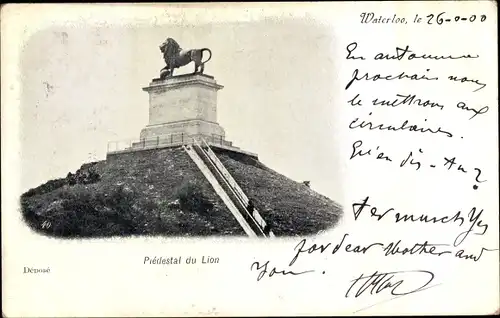 Waterloo, le 26-0-00
En automne
prochain nous
le mettrons aux
circulaires.
Qu'en dis-tu?
for dear Mother and
You.
40
Piédestal du Lion
Déposé